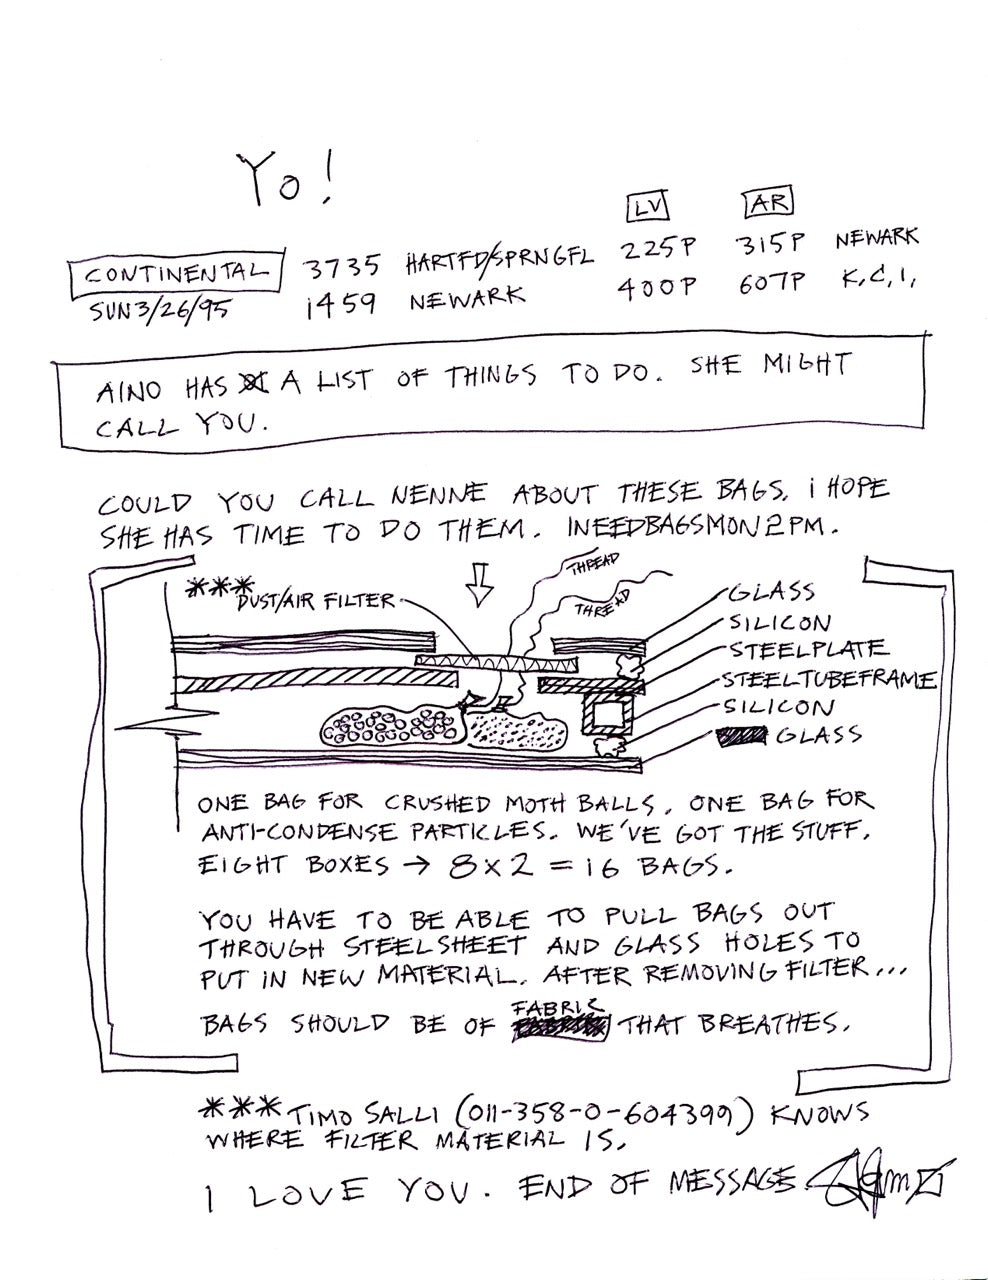 Yo!
LV AR
CONTINENTAL 3735 HARTFD/SPRNGFL 225P 315P NEWARK
SUN3/26/95 1459 NEWARK 400P 607P K.C.I.
AINO HAS A LIST OF THINGS TO DO. SHE MIGHT
CALL YOU.
COULD YOU CALL NENNE ABOUT THESE BAGS. I HOPE
SHE HAS TIME TO DO THEM. INEEDBAGSMON 2PM.
THREAD
***DUST/AIR FILTER
THREAD
GLASS
SILICON
STEELPLATE
STEELTUBEFRAME
SILICON
GLASS
ONE BAG FOR CRUSHED MOTH BALLS, ONE BAG FOR
ANTI-CONDENSE PARTICLES. WE'VE GOT THE STUFF.
EIGHT BOXES → 8 x 2 = 16 BAGS.
YOU HAVE TO BE ABLE TO PULL BAGS OUT
THROUGH STEELSHEET AND GLASS HOLES TO
PUT IN NEW MATERIAL. AFTER REMOVING FILTER...
BAGS SHOULD BE OF FABRIC THAT BREATHES.
***TIMO SALLI (011-358-0-604399) KNOWS
WHERE FILTER MATERIAL IS.
I LOVE YOU. END OF MESSAGE.